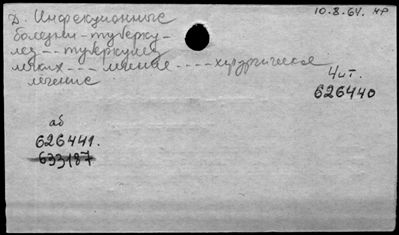 Д. Инфекционные 10.8.64. НР
болезни - туберку-
лез -- туберкулез
легких --- лечение ---- хирургическое
лечение
Чит.
626440
аб
626441.
633187